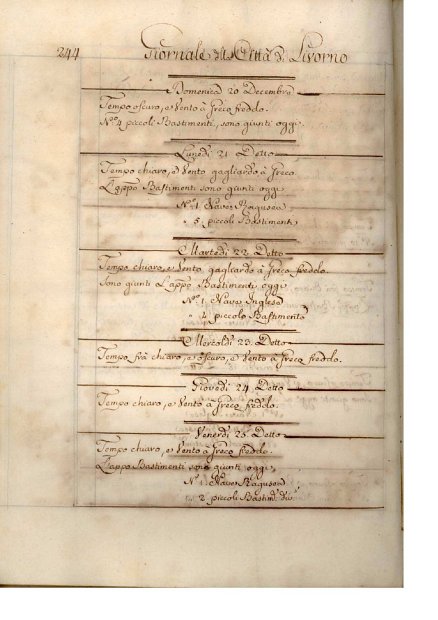 244 Giornale d. Città di Livorno
Domenica 20 Decembre
Tempo oscuro, e Vento à Greco freddo.
N.º 4 piccoli Bastimenti, sono giunti oggi.
Lunedi 21 Detto
Tempo chiaro, e Vento gagliardo à Greco
L'app.º Bastimenti sono giunti oggi
N.º 1 Nave Ragusea
" 5 piccoli Bastimenti
Martedi 22 Detto
Tempo chiaro, e Vento gagliardo à Greco freddo.
Sono giunti L'app.º Bastimenti oggi
N.º 1 Nave Inglese
" piccolo Bastimento
Mercoldi 23 Detto
Tempo frà chiaro, e oscuro, e Vento à Greco freddo.
Giovedi 24 Detto
Tempo chiaro, e Vento à Greco freddo.
Venerdi 25 Detto
Tempo chiaro, e Vento à Greco freddo.
L'app.º Bastimenti sono giunti oggi
N.º 1 Nave Ragusea
" 2 piccoli Bastim.